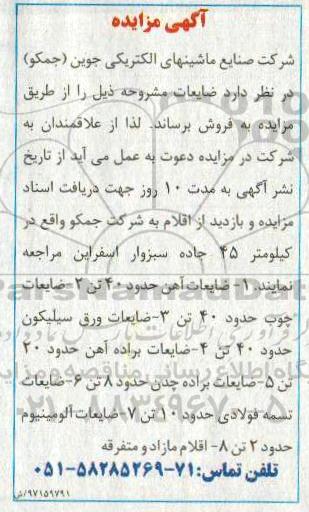 آگهی مزایده
شرکت صنایع ماشینهای الکتریکی جوین (جمکو)
در نظر دارد ضایعات مشروحه ذیل را از طریق
مزایده به فروش برساند. لذا از علاقمندان به
شرکت در مزایده دعوت به عمل می آید از تاریخ
نشر آگهی به مدت ۱۰ روز جهت دریافت اسناد
مزایده و بازدید از اقلام به شرکت جمکو واقع در
کیلومتر ۴۵ جاده سبزوار اسفراین مراجعه
نمایند. ۱- ضایعات آهن حدود ۴۰ تن ۲- ضایعات
چوب حدود ۴۰ تن ۳-ضایعات ورق سیلیکون
حدود ۴۰ تن ۴- ضایعات براده آهن حدود ۲۰
تن ۵-ضایعات براده چدن حدود ۸ تن ۶-ضایعات
تسمه فولادی حدود ۱۰ تن ۷-ضایعات آلومینیوم
حدود ۲ تن ۸- اقلام مازاد و متفرقه
تلفن تماس: ۷۱-۵۸۲۸۵۲۶۹-۰۵۱
۹۷۱۵۹۷۹۱/ش